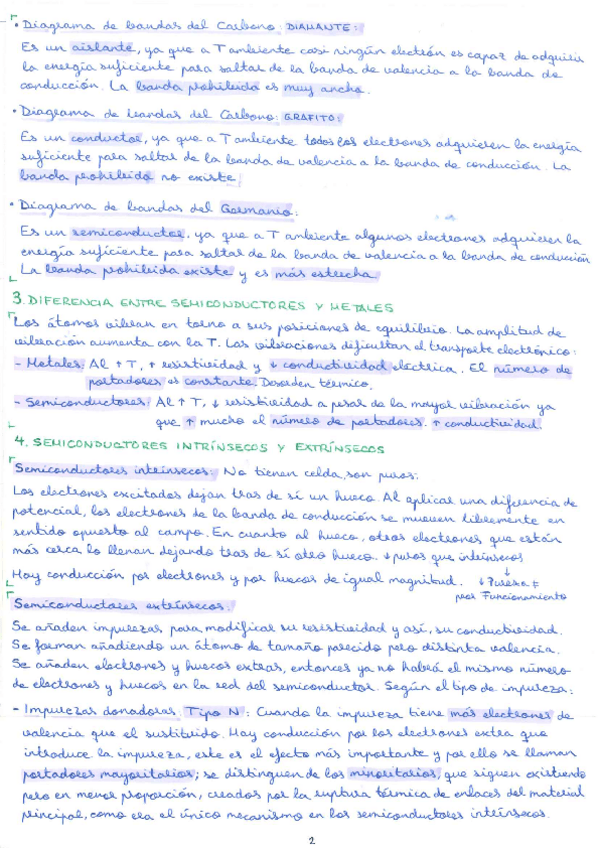 • Diagrama de bandas del Carbono: DIAMANTE:
Es un aislante, ya que a T ambiente casi ningún electrón es capaz de adquirir
la energía suficiente para saltar de la banda de valencia a la banda de
conducción. La banda prohibida es muy ancha.
• Diagrama de bandas del Carbono: GRAFITO:
Es un conductor, ya que a T ambiente todos los electrones adquieren la energía
suficiente para saltar de la banda de valencia a la banda de conducción. La
banda prohibida no existe.
• Diagrama de bandas del Germanio:
Es un semiconductor, ya que a T ambiente algunos electrones adquieren la
energía suficiente para saltar de la banda de valencia a la banda de conducción
La banda prohibida existe y es más estrecha.
3. DIFERENCIA ENTRE SEMICONDUCTORES Y METALES
Los átomos vibran en torno a sus posiciones de equilibrio. La amplitud de
vibración aumenta con la T. Las vibraciones dificultan el transporte electrónico:
- Metales: Al ↑ T, ↑ resistividad y ↓ conductividad eléctrica. El número de
portadores es constante. Desorden térmico.
- Semiconductores: Al ↑ T, ↓ resistividad a pesar de la mayor vibración ya
que ↑ mucho el número de portadores. ↑ conductividad.
4. SEMICONDUCTORES INTRÍNSECOS Y EXTRÍNSECOS
Semiconductores intrínsecos: No tienen celda, son puros.
Los electrones excitados dejan tras de sí un hueco. Al aplicar una diferencia de
potencial, los electrones de la banda de conducción se mueven libremente en
sentido opuesto al campo. En cuanto al hueco, otros electrones que están
más cerca lo llenan dejando tras de sí otro hueco. ↓ puros que intrínsecos
Hay conducción por electrones y por huecos de igual magnitud. ↓ Pureza ≠
peor Funcionamiento
Semiconductores extrínsecos:
Se añaden impurezas para modificar su resistividad y así, su conductividad.
Se forman añadiendo un átomo de tamaño parecido pero distinta valencia.
Se añaden electrones y huecos extras, entonces ya no habrá el mismo número
de electrones y huecos en la red del semiconductor. Según el tipo de impureza:
- Impurezas donadoras. Tipo N: Cuando la impureza tiene más electrones de
valencia que el sustituido. Hay conducción por los electrones extra que
introduce la impureza, este es el efecto más importante y por ello se llaman
portadores mayoritarios; se distinguen de los minoritarios, que siguen existiendo
pero en menor proporción, creados por la ruptura térmica de enlaces del material
principal, como era el único mecanismo en los semiconductores intrínsecos.
2